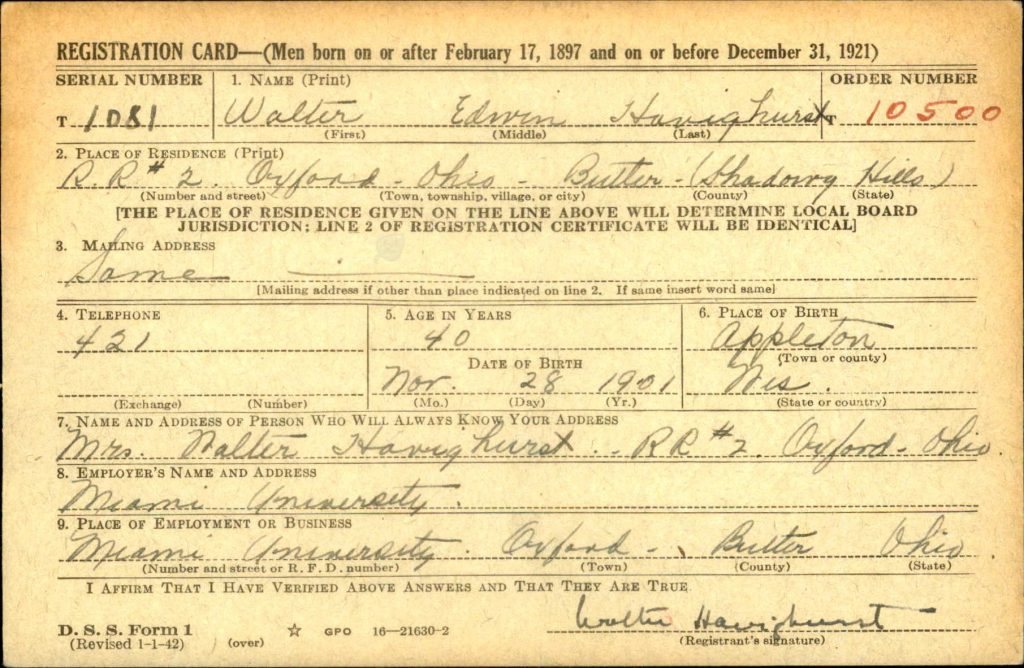 REGISTRATION CARD—(Men born on or after February 17, 1897 and on or before December 31, 1921)
SERIAL NUMBER 1. NAME (Print) ORDER NUMBER
T 1081 Walter Edwin Havighurst T 10500
(First) (Middle) (Last)
2. PLACE OF RESIDENCE (Print)
R.R # 2. Oxford - Ohio - Butler - (Shadowy Hills)
(Number and street) (Town, township, village, or city) (County) (State)
[THE PLACE OF RESIDENCE GIVEN ON THE LINE ABOVE WILL DETERMINE LOCAL BOARD
JURISDICTION; LINE 2 OF REGISTRATION CERTIFICATE WILL BE IDENTICAL]
3. MAILING ADDRESS
Same
[Mailing address if other than place indicated on line 2. If same insert word same]
4. TELEPHONE 5. AGE IN YEARS 6. PLACE OF BIRTH
421 40 Appleton
(Town or county)
DATE OF BIRTH
Nov. 28 1901 Wis.
(Exchange) (Number) (Mo.) (Day) (Yr.) (State or country)
7. NAME AND ADDRESS OF PERSON WHO WILL ALWAYS KNOW YOUR ADDRESS
Mrs. Walter Havighurst. RR # 2. Oxford - Ohio.
8. EMPLOYER'S NAME AND ADDRESS
Miami University.
9. PLACE OF EMPLOYMENT OR BUSINESS
Miami University. Oxford - Butler Ohio
(Number and street or R. F. D. number) (Town) (County) (State)
I AFFIRM THAT I HAVE VERIFIED ABOVE ANSWERS AND THAT THEY ARE TRUE
Walter Havighurst
D. S. S. Form 1 (Revised 1-1-42) (over) ☆ GPO 16—21630-2 (Registrant's signature)